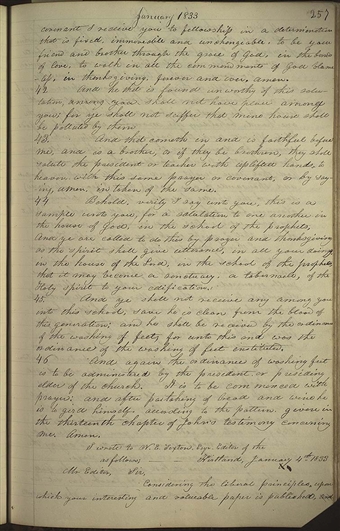 January 1833
257
covenant I receive you to fellowship in a determination
that is fixed, immoveable and unchangeable, to be your
friend and brother through the grace of God, in the bonds
of love, to walk in all the commandments of God blame-
less, in thanksgiving, forever and ever, amen.
42. And he that is found unworthy of this salu-
tation, among you shall not have place among
you; for ye shall not suffer that mine house shall
be polluted by them.
43. And that cometh in and is faithful before
me, and is a brother, or if they be brethren, they shall
salute the president or teacher with uplifted hands, to
heaven with this same prayer or covenant, or by say-
ing, amen, in token of the same.
44. Behold, verily I say unto you, this is a
sample unto you, for a salutation to one another in
the house of God, in the school of the prophets,
And ye are called to do this by prayer and thanksgiving
as the spirit shall give utterance, in all your doings
in the house of the Lord, in the school of the prophets,
that it may become a sanctuary, a tabernacle, of the
Holy spirit to your edification.
45. And ye shall not receive any among you
into this school, save he is clean from the blood of
this generation: and he shall be received by the ordinance
of the washing of feet; for unto this end was the
ordinance of the washing of feet instituted.
46. And again, the ordinance of washing feet
is to be administered by the president, or presiding
elder of the church. It is to be commenced with
prayer: and after partaking of bread and wine he
is to gird himself, according to the pattern given in
the thirteenth chapter of John's testimony concerning
me. Amen.
I wrote to N. E. Editor of the
as follows; Kirtland, January 4th 1833
Mr Editor, Sir,
Considering the liberal principles, upon
which your interesting and valuable paper is published, and